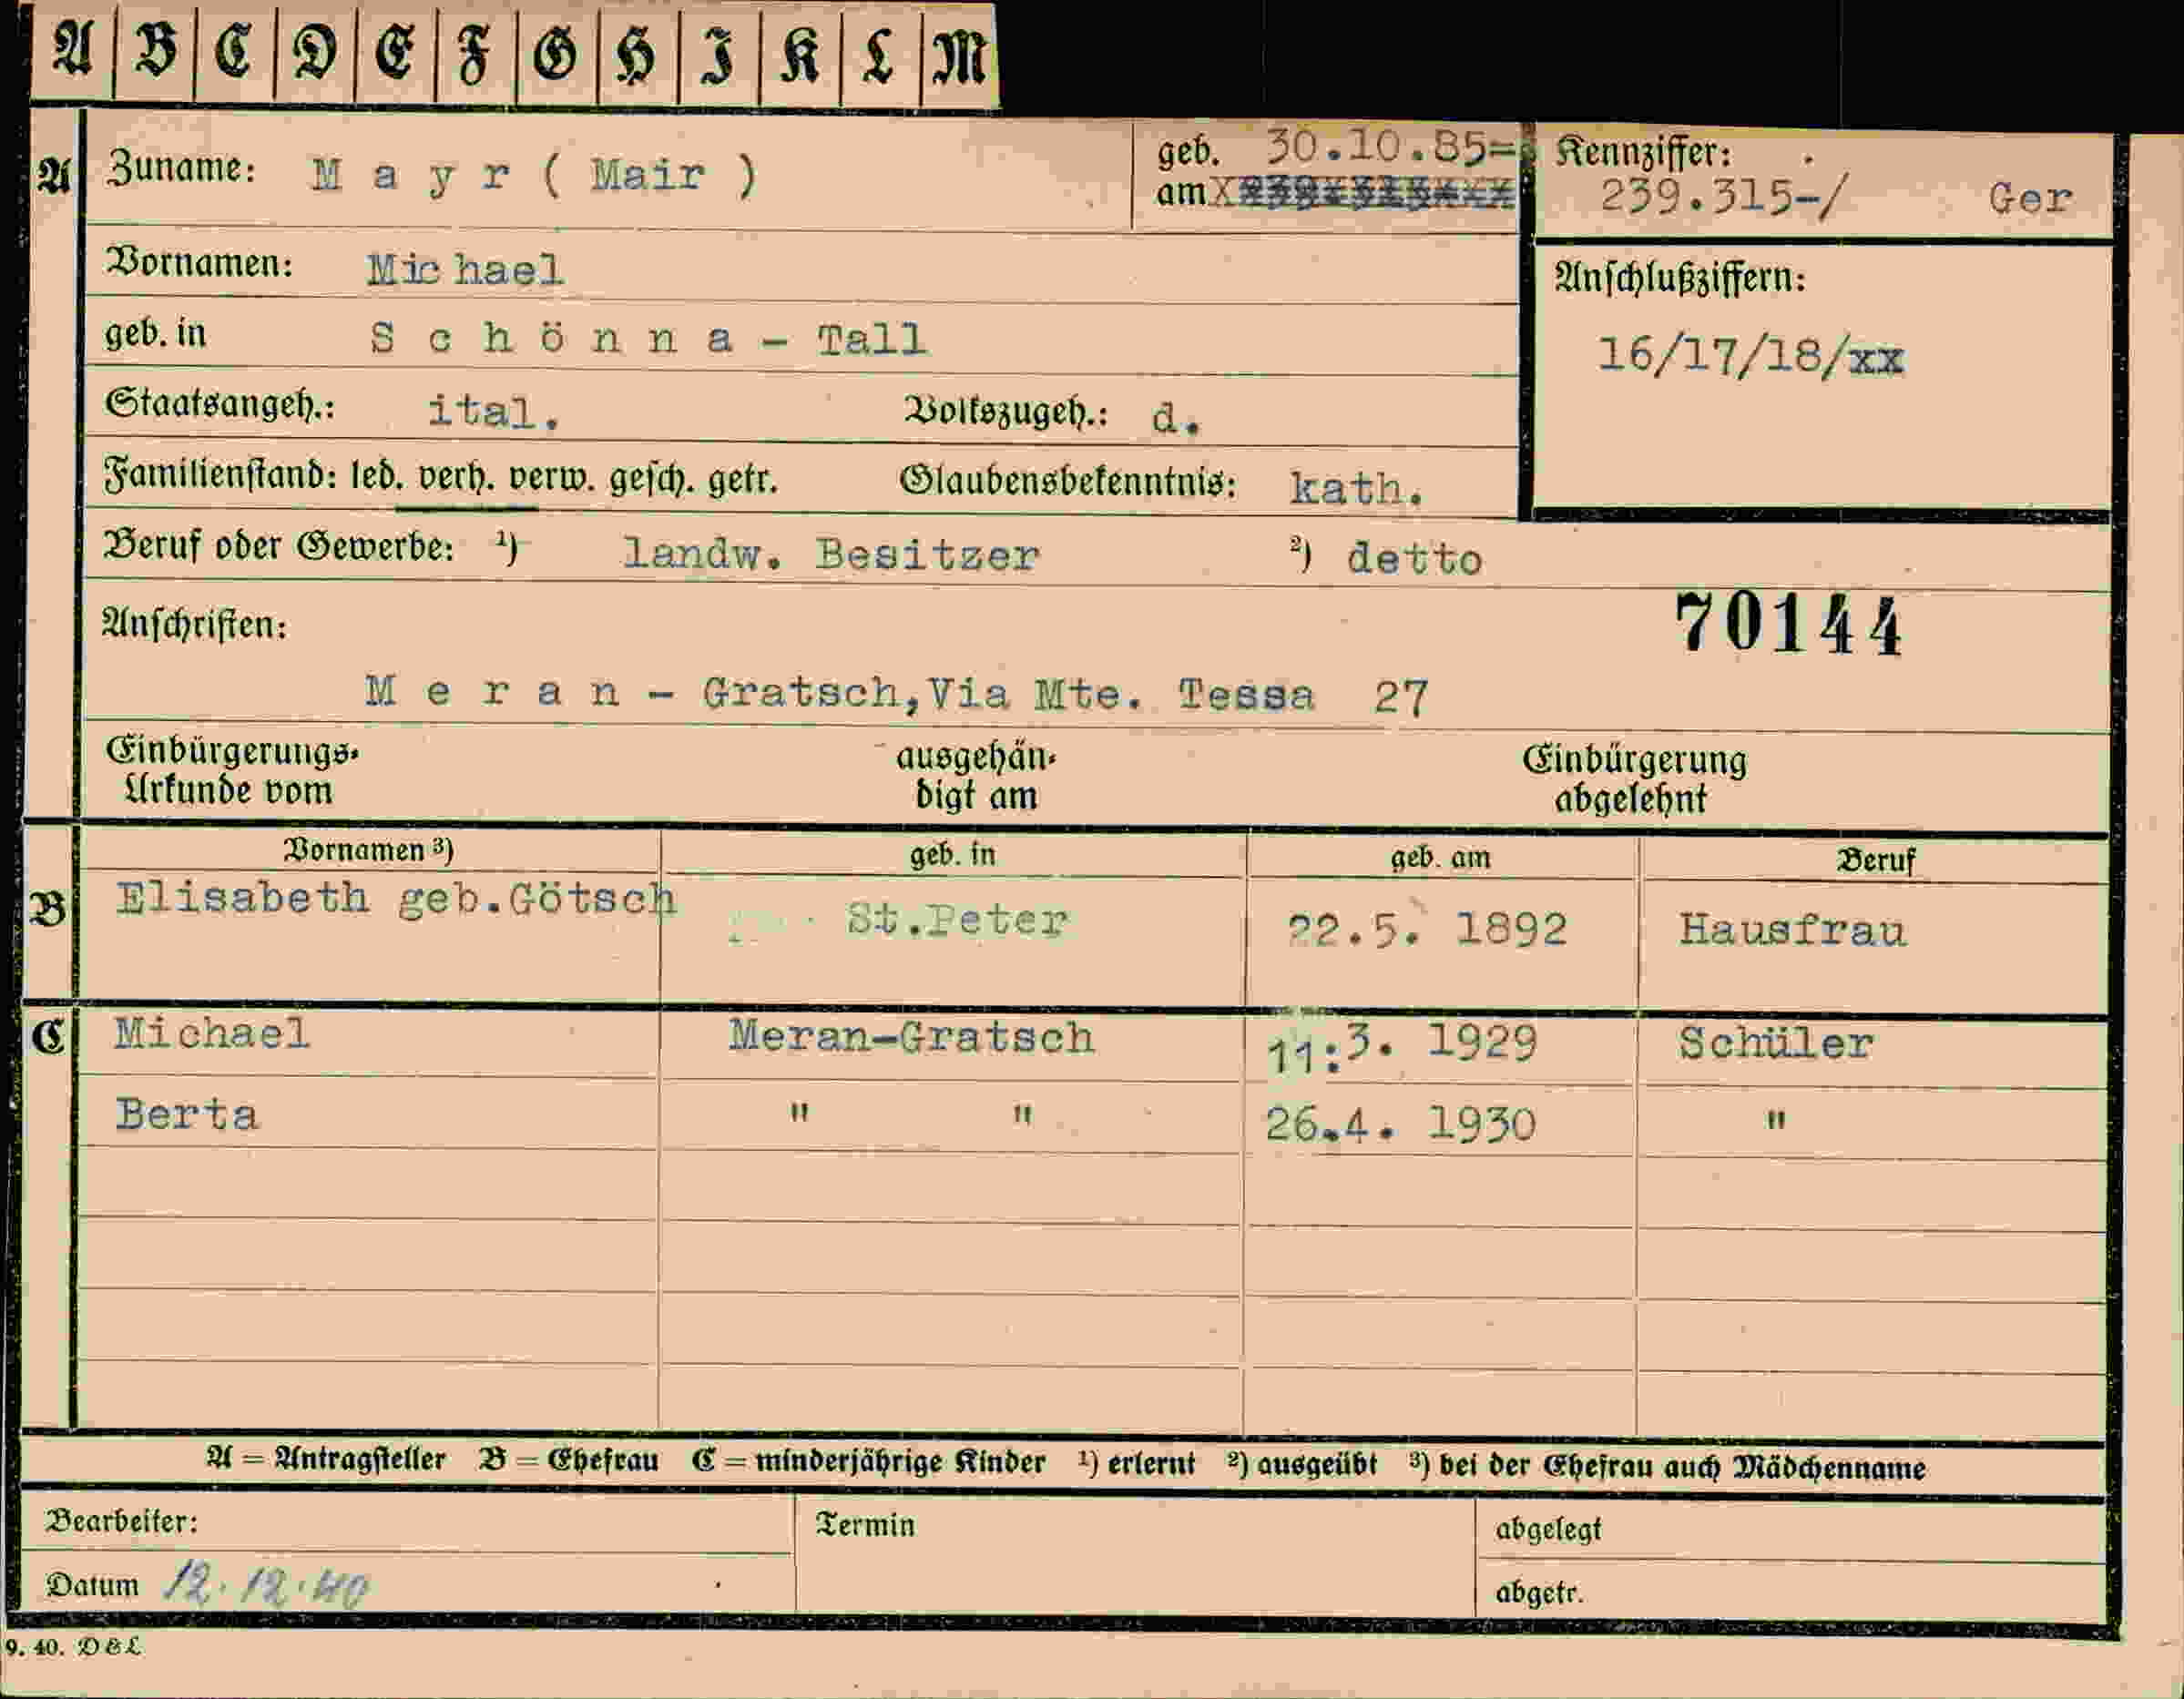 A B C D E F G H I K L M
A Zuname: M a y r ( Mair ) geb. am 30.10.85= Kennziffer: 239.315-/ Ger
Vornamen: Mic hael
Anschlußziffern:
geb. in S c h ö n n a - Tall
16/17/18/xx
Staatsangeh.: ital. Volkszugeh.: d.
Familienstand: led. verh. verw. gesch. getr. Glaubensbekenntnis: kath.
Beruf oder Gewerbe: 1) landw. Besitzer 2) detto
Anschriften: 70144
M e r a n - Gratsch,Via Mte. Tessa 27
Einbürgerungs- ausgehän- Einbürgerung
Urkunde vom digt am abgelehnt
Vornamen 3) geb. in geb. am Beruf
B Elisabeth geb.Götsch St.Peter 22.5. 1892 Hausfrau
C Michael Meran-Gratsch 11:3. 1929 Schüler
Berta " " 26.4. 1930 "
A = Antragsteller B = Ehefrau C = minderjährige Kinder 1) erlernt 2) ausgeübt 3) bei der Ehefrau auch Mädchenname
Bearbeiter: Termin abgelegt
Datum 12.12.40 abgetr.
9. 40. D & L